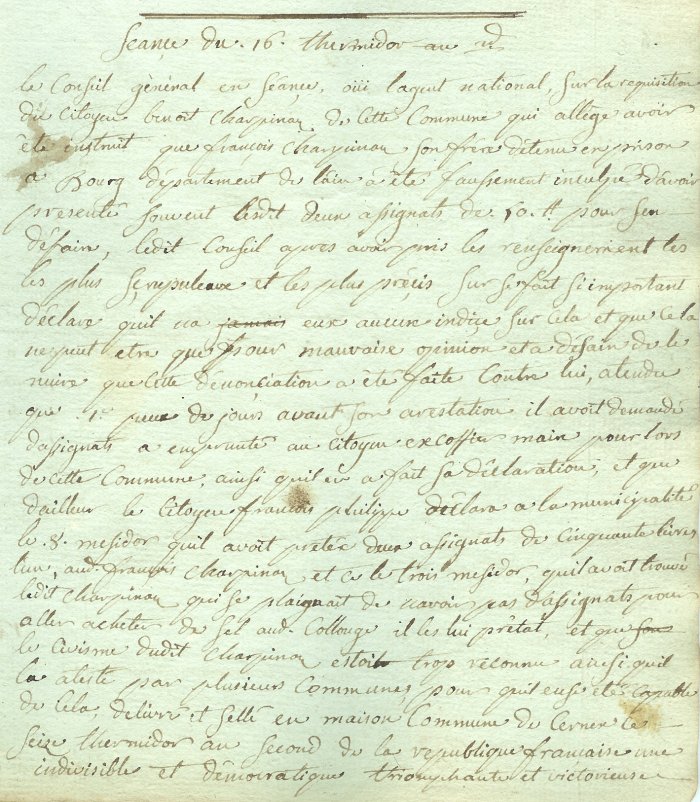 Seance du 16. thermidor an 2d
le Conseil général en séance, oüi lagent national, sur la requisition
du Citoyen benoit Charpinaz de Cette Commune qui allège avoir
été instruit que françois Charpinaz son frère détenu en prison
a Bourg département de lain a été faussement inculpé davoir
presenté souvent lesdit deux assignats de 50. tt. pour sen
défaire, ledit Conseil apres avoir pris les renseignement les
les plus scrupuleux et les plus précis sur se fait si important
déclare quil na jamais eux aucune indice sur Cela et que Cela
ne peut etre que pour mauvaise opinion et a désain de le
nuire que Cette dénonciation a été faite Contre lui, atendu
que de jours avant son arestation il avoit demandé
dassignats a emprunté au Citoyen excoffier maire pour lors
de Cette Commune, ainsi quil en a fait sa déclaration, et que
dailleur le Citoyen françois philippe déclara a la municipalité
le 8. mesidor quil avoit pretée deux assignats de Cinquante livres
lun, aud. françois Charpinaz et Ce le trois mesidor, quil avoit trouvé
ledit Charpinaz qui se plaignait de navoir pas dassignats pour
aller acheter du Sel aud. Collonge il les lui prétat, et que son
le Civisme dudit Charpinaz estoit trop reconnu ainsi quil
la atesté par plusieurs Communes, pour quil euse été Capable
de Cela, délivré et sellé en maison Commune de Cerner le
seize thermidor an second de la republique francaise une
indivisible et démocratique triomphante et victorieuse